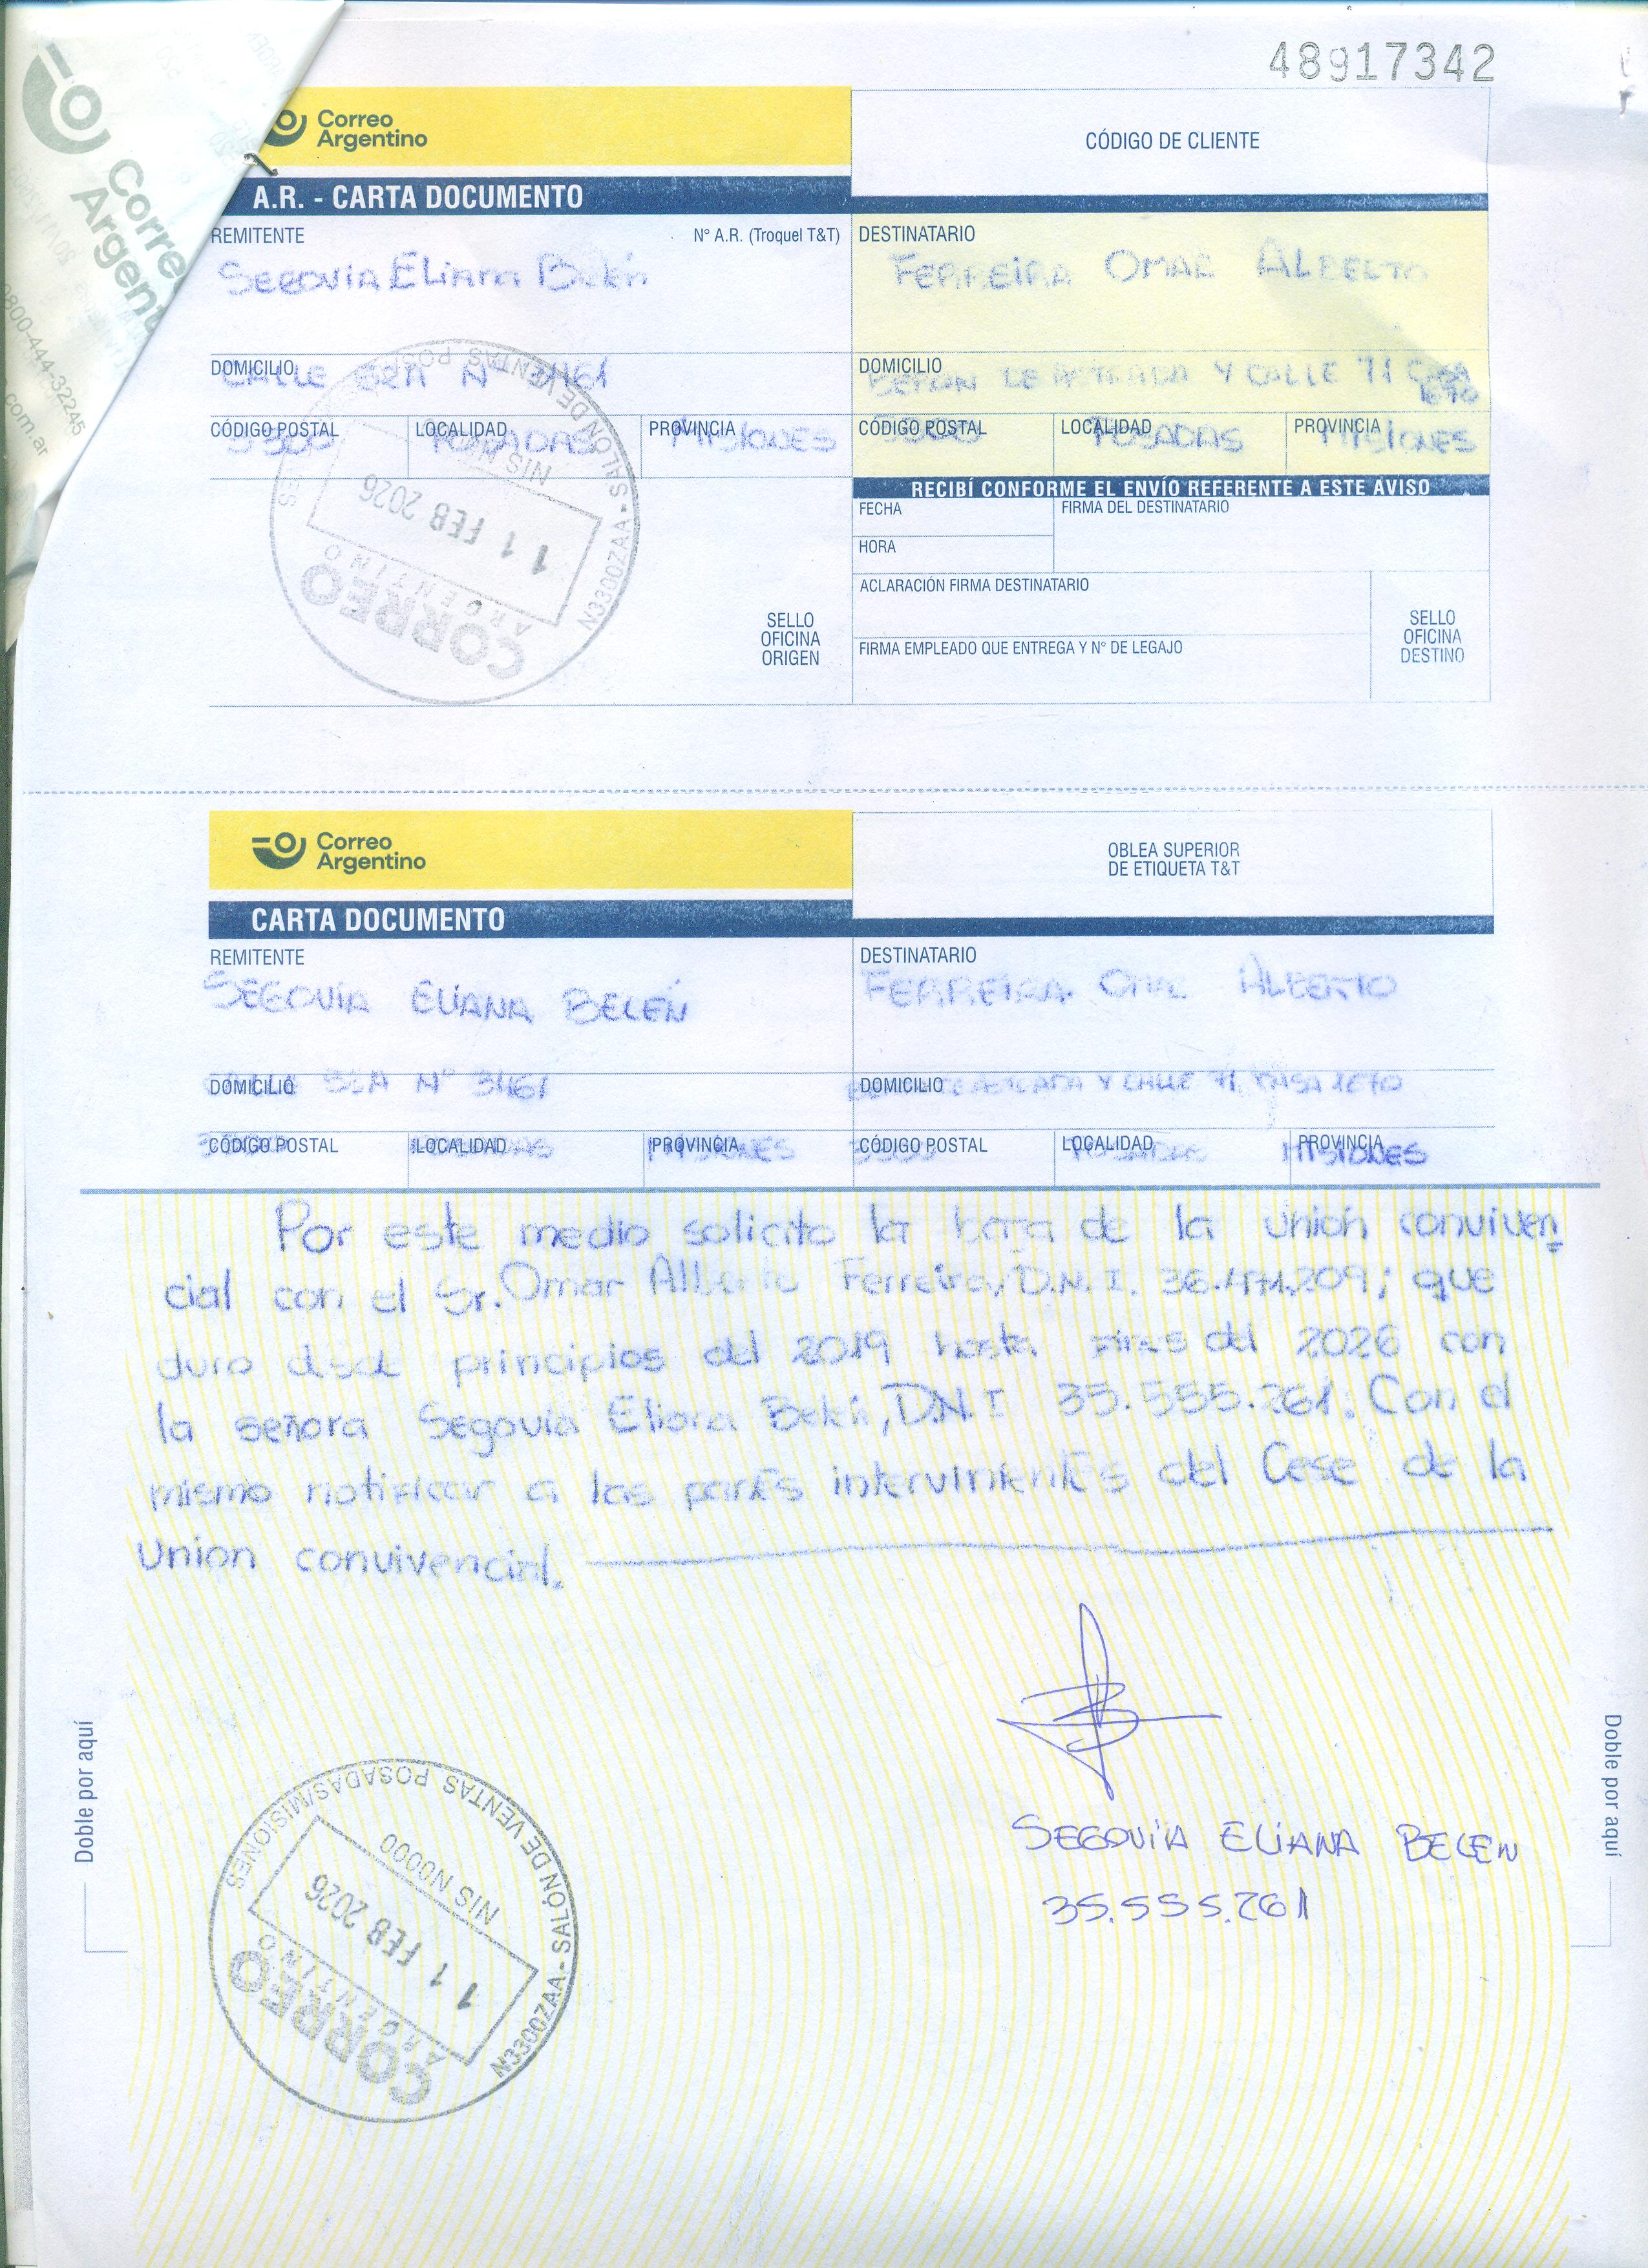 48917342
Correo
Argentino
CÓDIGO DE CLIENTE
A.R. - CARTA DOCUMENTO
REMITENTE
N° A.R. (Troquel T&T)
DESTINATARIO
SEGOVIA ELIANA BELÉN
FERREIRA OMAR ALBERTO
DOMICILIO
CALLE N°
DOMICILIO
Y CALLE 71 CASA
CÓDIGO POSTAL
LOCALIDAD
PROVINCIA
CÓDIGO POSTAL
LOCALIDAD
PROVINCIA
3300 POSADAS MISIONES
3300 POSADAS MISIONES
RECIBÍ CONFORME EL ENVÍO REFERENTE A ESTE AVISO
FECHA
FIRMA DEL DESTINATARIO
HORA
ACLARACIÓN FIRMA DESTINATARIO
FIRMA EMPLEADO QUE ENTREGA Y N° DE LEGAJO
SELLO
OFICINA
ORIGEN
SELLO
OFICINA
DESTINO
N3300ZAA - SALÓN DE VENTAS
11 FEB 2026
CORREO
ARGENTINO
Correo
Argentino
0800-444-32245
.com.ar
Correo
Argentino
OBLEA SUPERIOR
DE ETIQUETA T&T
CARTA DOCUMENTO
REMITENTE
DESTINATARIO
SEGOVIA ELIANA BELÉN
FERREIRA OMAR ALBERTO
DOMICILIO
N° 3461
DOMICILIO
Y CALLE 71, CASA
CÓDIGO POSTAL
LOCALIDAD
PROVINCIA
CÓDIGO POSTAL
LOCALIDAD
PROVINCIA
MISIONES
POSADAS MISIONES
Por este medio solicito la baja de la union conviven
cial con el Sr. Omar Alberto Ferreira, D.N.I. ; que
duro desde principios del 2019 hasta fines del 2026 con
la señora Segovia Eliana Belén, D.N.I 35.555.261. Con el
mismo notificar a las partes intervinientes del Cese de la
Union convivencial.
SEGOVIA ELIANA BELEN
35.555.261
N3300ZAA - SALÓN DE VENTAS POSADAS/MISIONES
MISIONES
NIS N00000
11 FEB 2026
CORREO
ARGENTINO
Doble por aquí
Doble por aquí